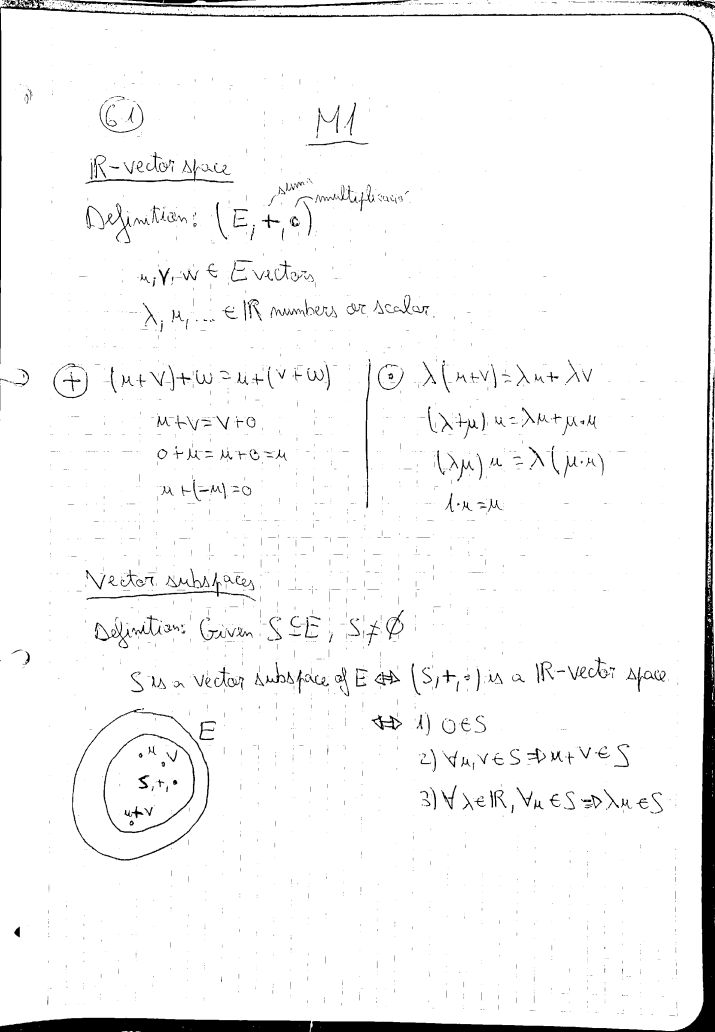 G1
M1
IR-vector space
suma
multiplicació
Definition: (E, +, ∘)
u, v, w ∈ E vectors
λ, μ, ... ∈ IR numbers or scalar.
⊕ (u+v)+w = u+(v+w)
u+v = v+0
0+u = u+0 = u
u+(-u) = 0
⊙ λ(u+v) = λu + λv
(λ+μ) u = λu + μ·u
(λμ) u = λ(μ·u)
1·u = u
Vector subspaces
Definition: Given S⊆E, S≠∅
S is a vector subspace of E ⇔ (S, +, ∘) is a IR-vector space.
⇔ 1) 0∈S
2) ∀u, v ∈ S ⇒ u+v ∈ S
3) ∀λ∈IR, ∀u ∈ S ⇒ λu ∈ S
E
u v
S, +, •
u+v